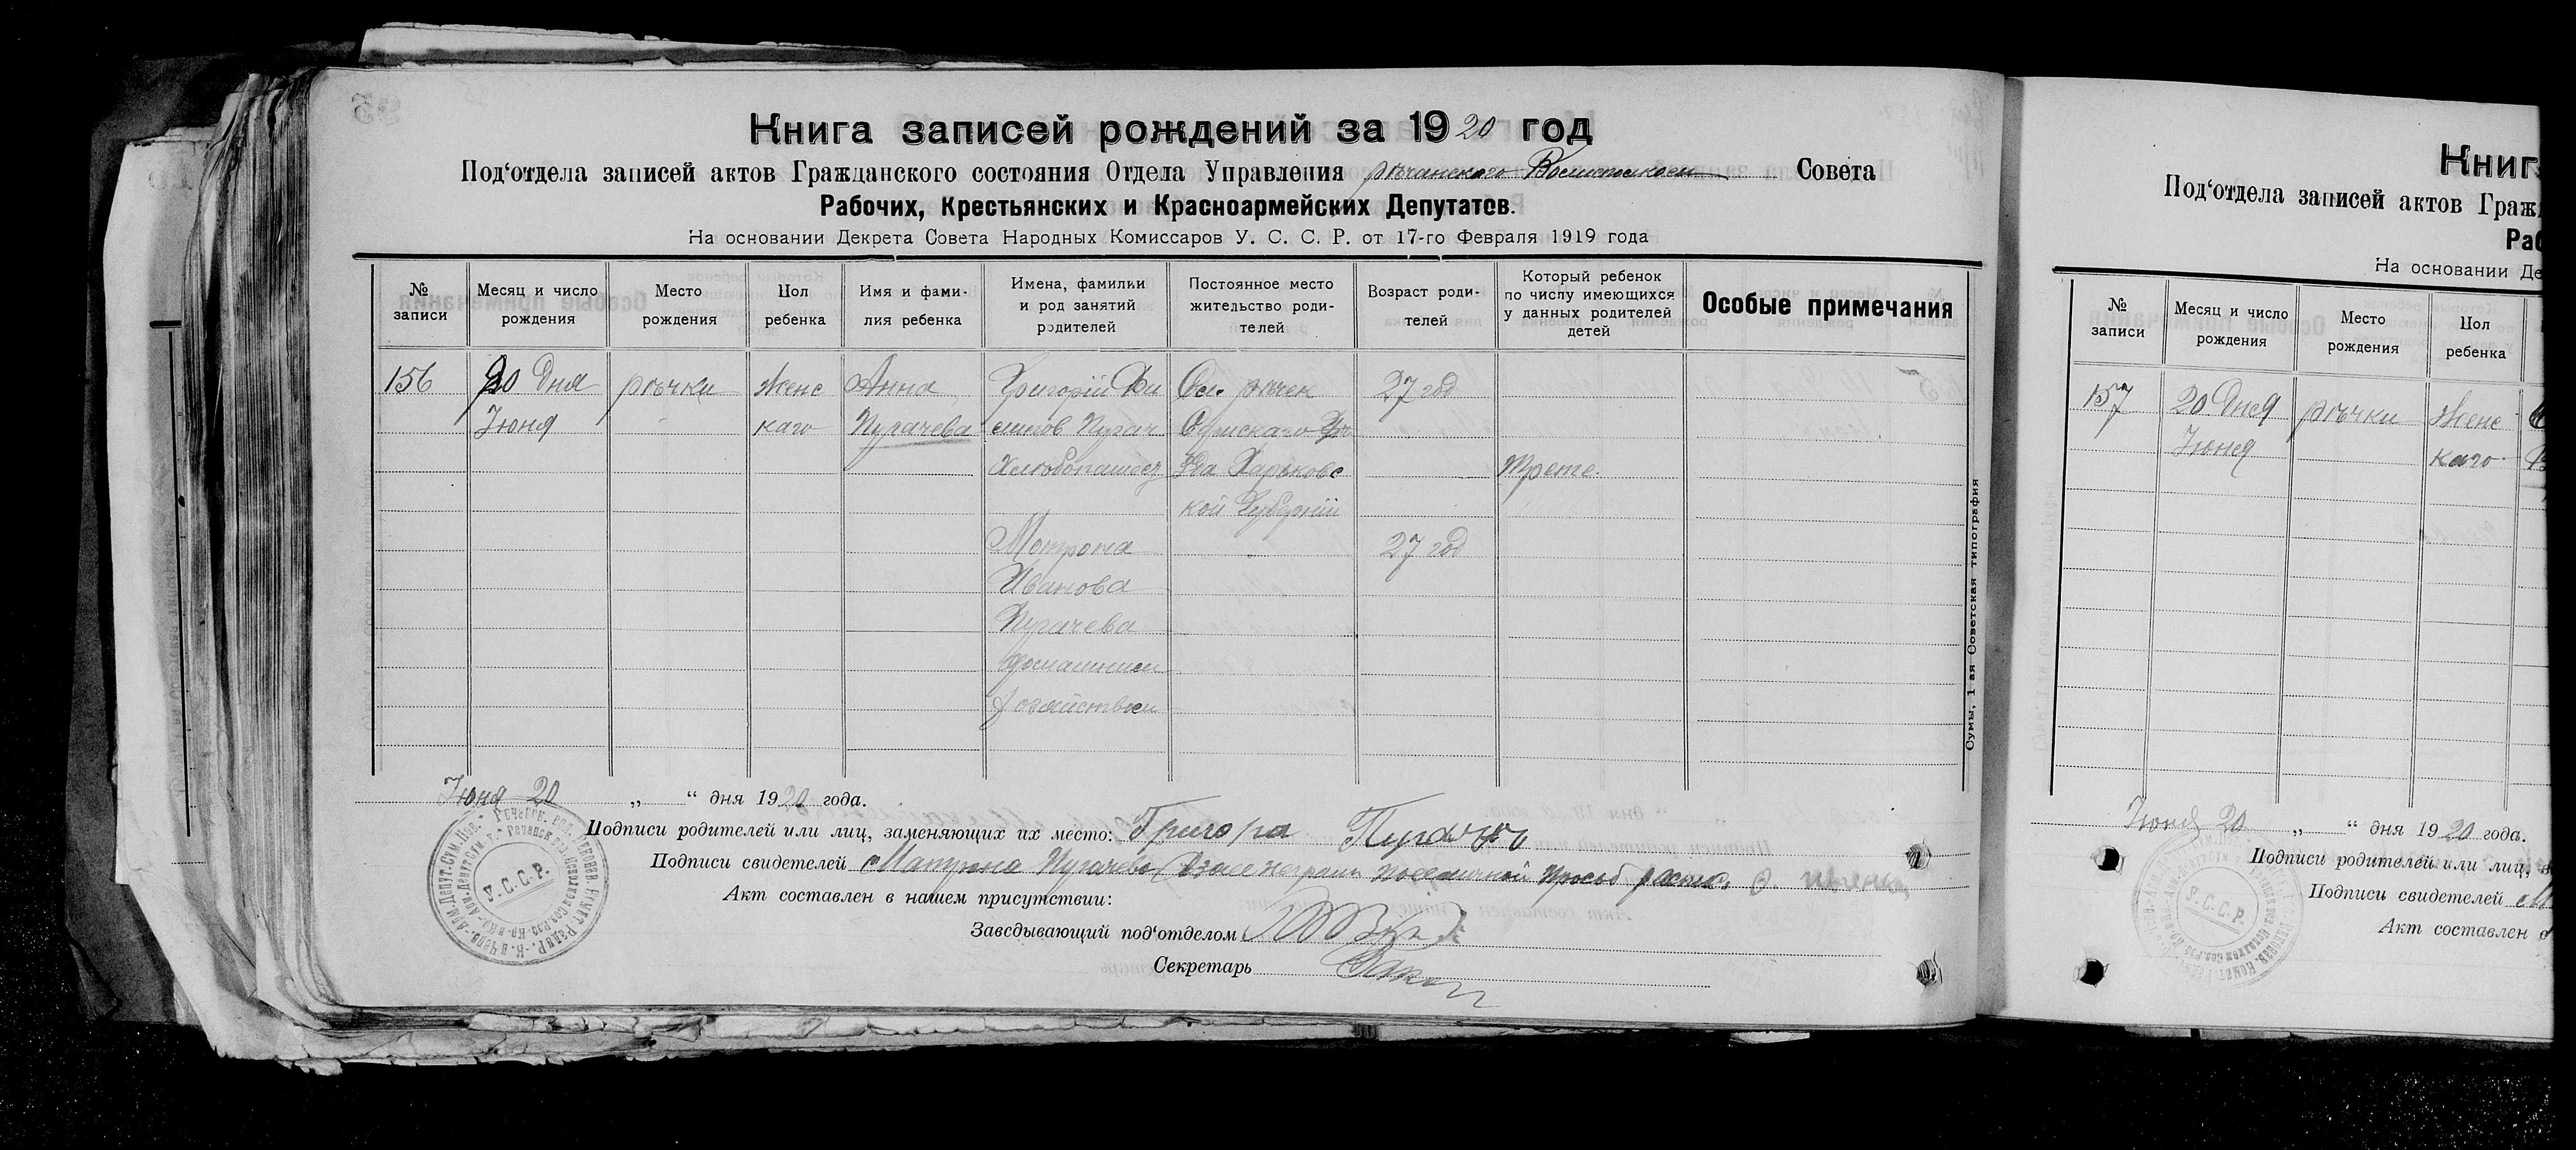 Книга записей рождений за 1920 год
Под‘отдела записей актов Гражданского состояния Отдела Управления рѣчанского Совета
Рабочих, Крестьянских и Красноармейских Депутатов.
На основании Декрета Совета Народных Комиссаров У. С. С. Р. от 17-го Февраля 1919 года
№ записи
Месяц и число рождения
Место рождения
Пол ребенка
Имя и фамилия ребенка
Имена, фамилии и род занятий родителей
Постоянное место жительство родителей
Возраст родителей
Который ребенок по числу имеющихся у данных родителей детей
Особые примечания
156
20 дня
Июня
рѣчки
Женс
каго
Анна
Пугачева
Григорій
Пугач
Хлебопашец
Матрона
Иванова
Пугачева
домашнем
хозяйством
Сел. рѣчек
Сумскаго
Харьковс
кой Губернии
27 год
27 год
Трете.
Сумы, 1-ая Советская типография
Июня 20 „ “ дня 1920 года.
Подписи родителей или лиц, заменяющих их место: Григора
Подписи свидетелей Матрона Пугачева
Акт составлен в нашем присутствии:
Заведывающий под‘отделом
Секретарь
У.С.С.Р.
Книг
Под‘отдела записей актов Гражд
Раб
На основании Де
№ записи
Месяц и число рождения
Место рождения
Пол ребенка
157
20 дня
Июня
рѣчки
Женс
каго
Июня 20 „ “ дня 1920 года.
Подписи родителей или лиц, з
Подписи свидетелей
Акт составлен в
У.С.С.Р.